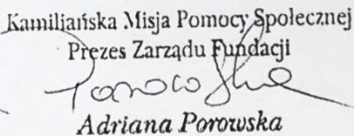 Kamiliańska Misja Pomocy Społecznej
Prezes Zarządu Fundacji
Porowska
Adriana Porowska